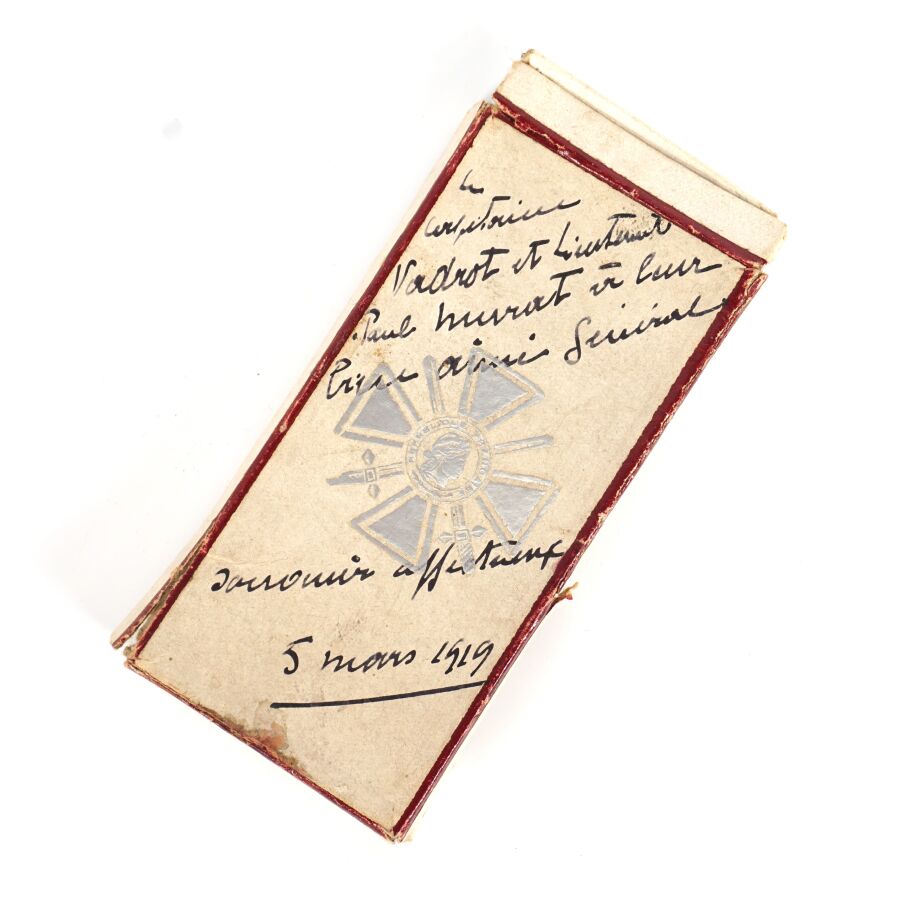 Le
Capitaine
Vadrot et Lieutenant
Paul Murat à leur
bien aimé Général
souvenir affectueux
5 mars 1919